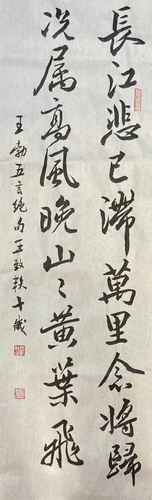 長江悲已滯萬里念將歸
况属高風晚山〻黄葉飛
王勃五言絶句王致軼十歲